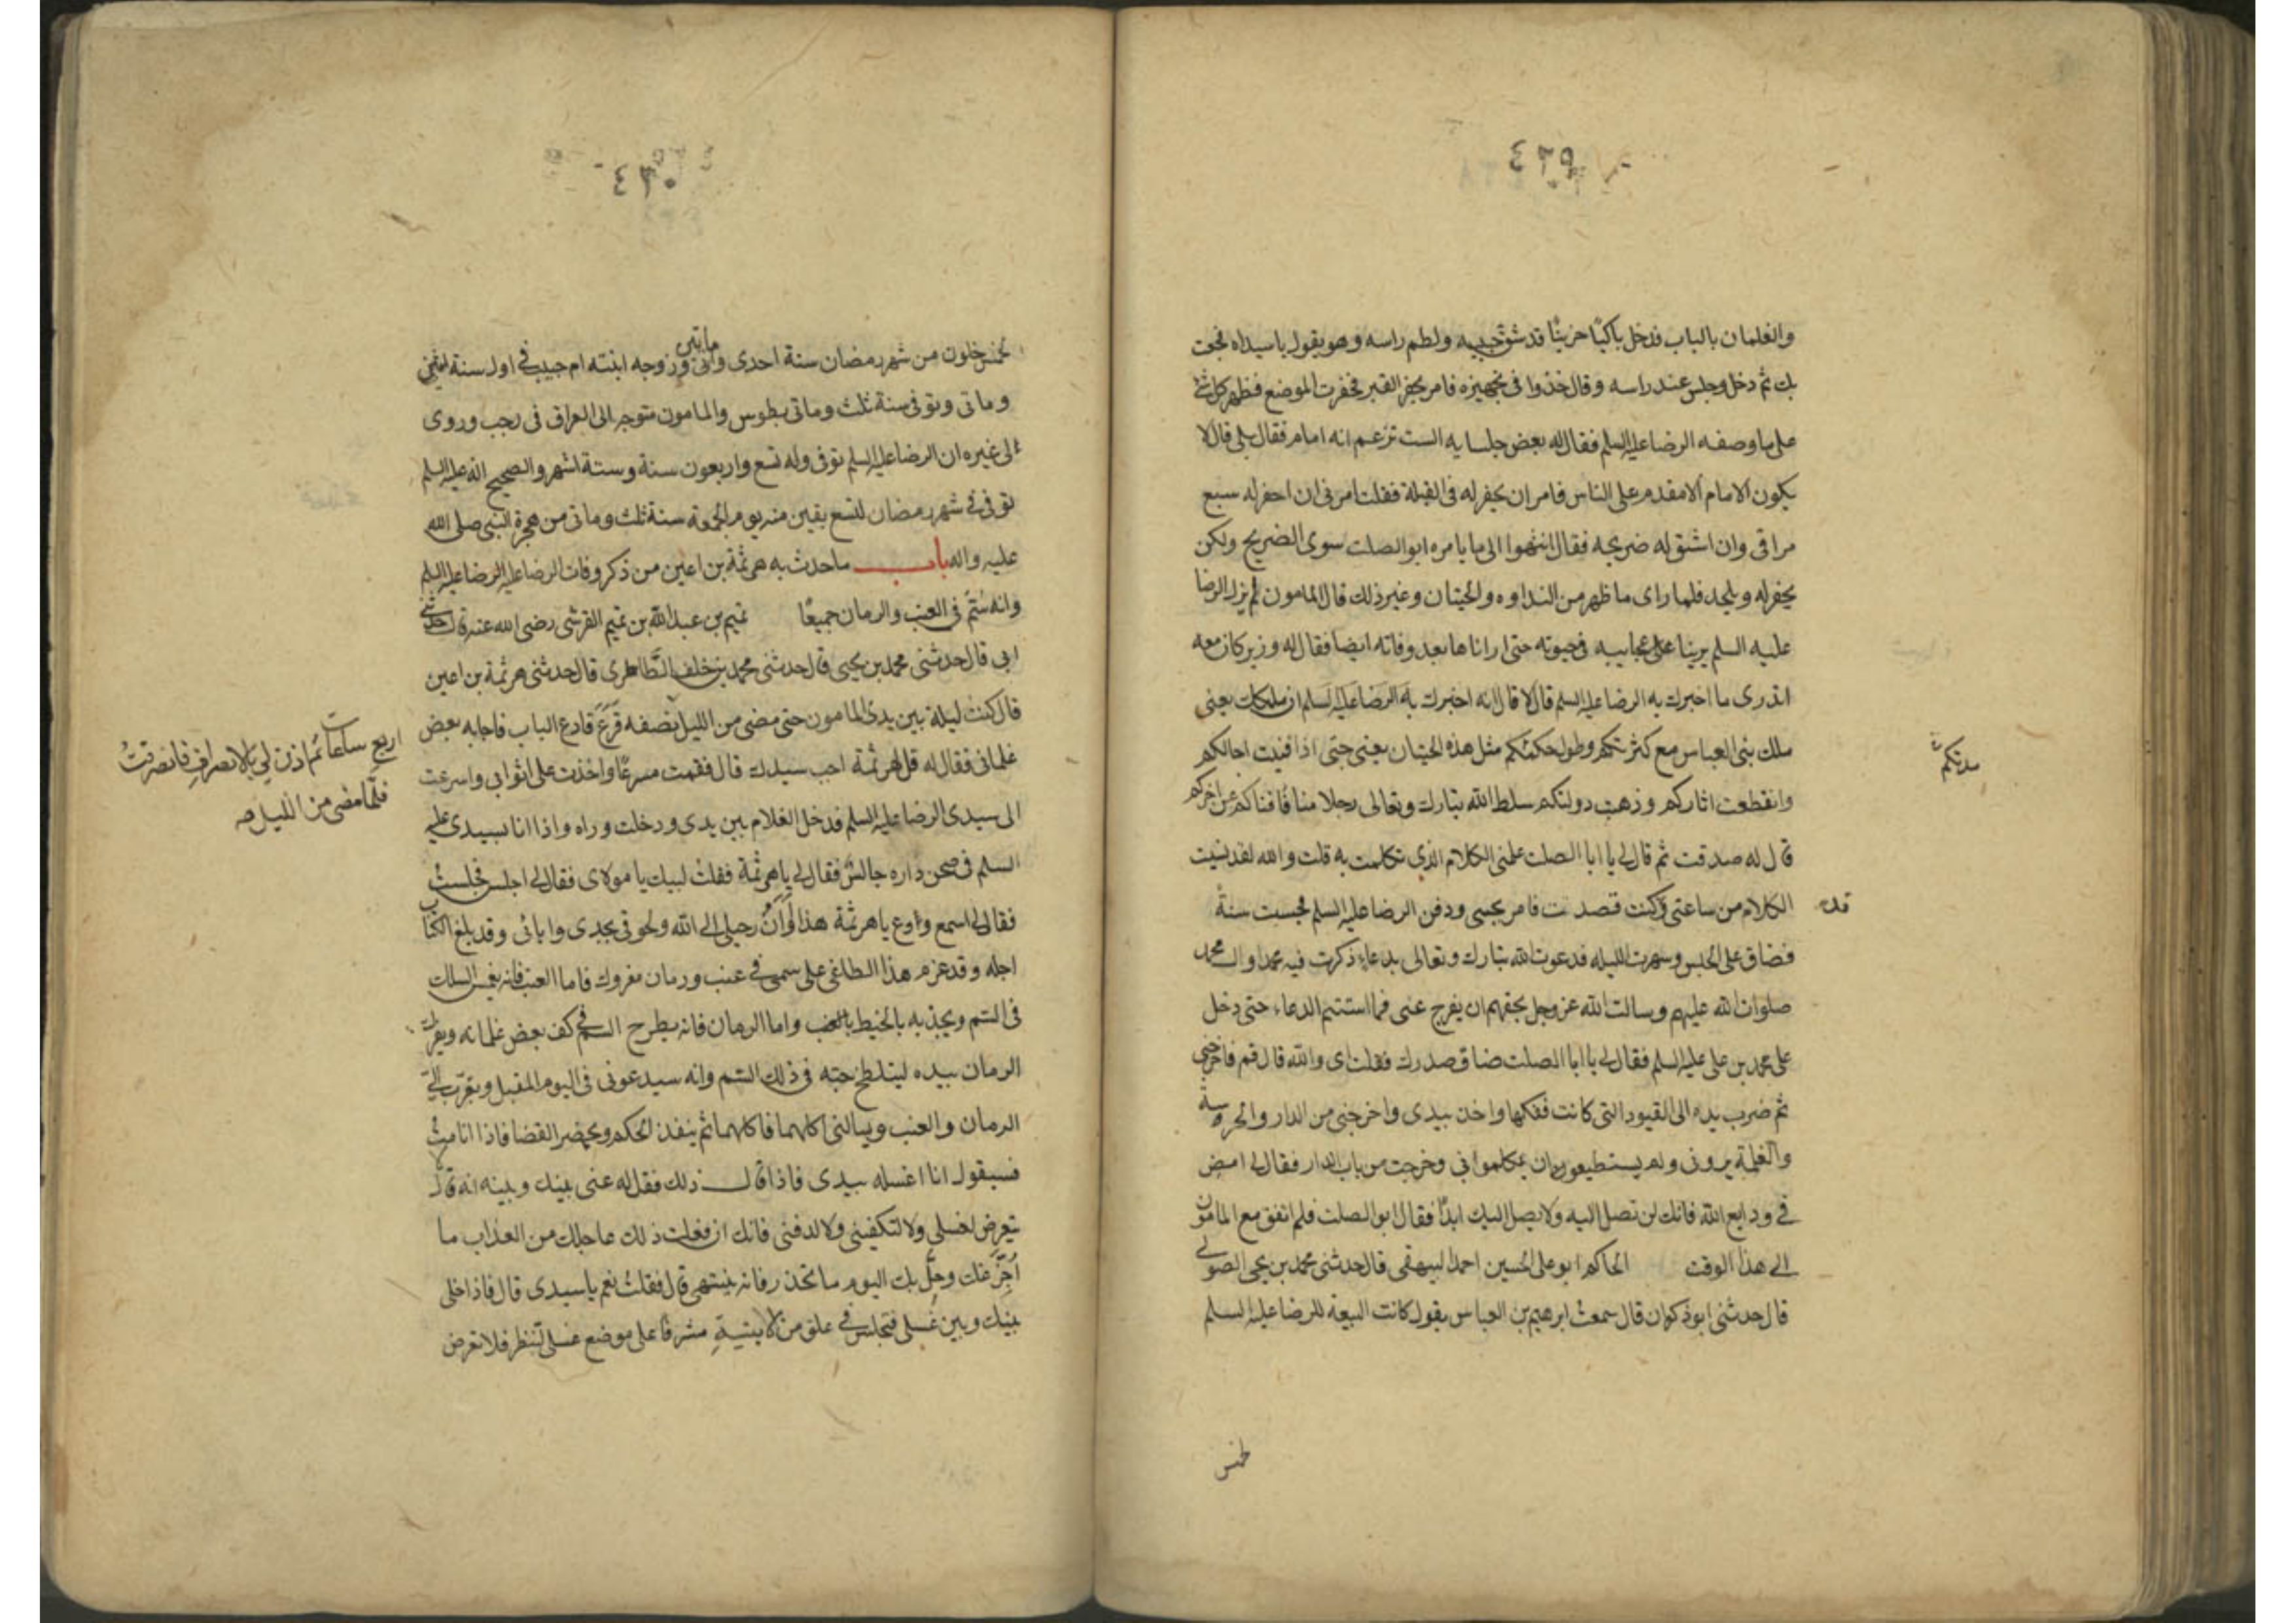 ٤٢٩
والغلمان بالباب فدخل باكيًا حزينًا قد شق جيبه ولطم راسه وهو يقول يا سيداه فجعت
بك ثم دخل وجلس عند راسه وقال خذوا في تجهيزه فامر بحفر القبر فحفرت الموضع فظهر كل شئ
على ما وصفه الرضا عليه السلم فقال له بعض جلسايه الست تزعم انه امام فقال بلى قال لا
يكون الامام الا مقدم على الناس فامر ان يحفر له في القبلة فقلت امرنى ان احفر له سبع
مراقى وان اشق له ضريحه فقال انتهوا الى ما يامر به ابو الصلت سوى الضريح ولكن
يحفر له ويلحد فلما راى ما ظهر من النداوه والحيتان وغير ذلك قال المامون لم يزل الرضا
عليه السلم يرينا عجايبه في حيوته حتى اراناها بعد وفاته ايضا فقال له وزير كان معه
اتدرى ما اخبرك به الرضا عليه السلم قال لا قال انه اخبرك به الرضا عليه السلم ان ملككم يعنى
ملك بنى العباس مع كثرتكم وطول حكمتكم مثل هذه الحيتان يعنى حتى اذا فنيت اجالكم
مدتكم
وانقطعت اثاركم وذهبت دولتكم سلط الله تبارك وتعالى رجلا منا فافناكم عن اخركم
قال له صدقت ثم قال لي يا ابا الصلت علمنى الكلام الذي تكلمت به قلت والله لقد نسيت
الكلام من ساعتى وكنت قصدت فامر بحبسى ودفن الرضا عليه السلم فحبست سنة
قد
فضاق على الحبس وسهرت الليله فدعوت الله تبارك وتعالى بدعاء ذكرت فيه محمدا وال محمد
صلوات الله عليهم وسالت الله عز وجل بحقهم ان يفرج عنى فما استتم الدعاء حتى دخل
على محمد بن على عليه السلم فقال لي يا ابا الصلت ضاق صدرك فقلت اى والله قال قم فاخرجنى
ثم ضرب يده الى القيود التى كانت ففكها واخذ بيدى واخرجنى من الدار والحرسة
والغلمة يرونى ولم يستطيعون ان يكلموانى وخرجت من باب الدار فقال لي امض
في ودايع الله فانك لن تصل اليه ولا يصل اليك ابدًا فقال ابو الصلت فلم التق مع المامون
الى هذا الوقت الحاكم ابو على الحسين احمد البيهقى قال حدثنى محمد بن يحيى الصولى
قال حدثنى ابو ذكوان قال سمعت ابرهيم بن العباس يقول كانت البيعة للرضا عليه السلم
لخمس
٤٣٠
لخمس خلون من شهر رمضان سنة احدى وماتين وزوجه ابنته ام حبيب في اول سنة اثنتى
وماتى وتوفى سنة ثلث وماتى بطوس والمامون متوجه الى العراق في رجب وروى
لى غيره ان الرضا عليه السلم توفى وله تسع واربعون سنة وستة اشهر والصحيح انه عليه السلم
توفى في شهر رمضان لتسع بقين منه يوم الجمعة سنة ثلث وماتى من هجرة النبى صلى الله
عليه واله باب ما حدث به هرثمة بن اعين من ذكر وفات الرضا عليه الرضا عليه السلم
وانه سُمّ فى العنب والرمان جميعًا تميم بن عبد الله بن تميم القرشى رضى الله عنه قال حدثنى
ابى قال حدثنى محمد بن يحيى قال حدثنى محمد بن خلف الطاطرى قال حدثنى هرثمة بن اعين
قال كنت ليلة بين يدى المامون حتى مضى من الليل نصفه قرع قارع الباب فاجابه بعض
اربع ساعات ثم اذن لي بالانصراف فانصرفت
فلما مضى من الليل
غلمانى فقال له قل لهرثمة اجب سيدك قال فقمت مسرعًا واخذت على اثوابى واسرعت
الى سيدى الرضا عليه السلم فدخل الغلام بين يدى ودخلت وراه واذا انا بسيدى عليه
السلم في صحن داره جالسٌ فقال لي يا هرثمة فقلت لبيك يا مولاى فقال لي اجلس فجلستُ
فقال لي اسمع واوع يا هرثمة هذا اوانُ رحيلى الى الله ولحوقى بجدى وابائى وقد بلغ الكتاب
اجله وقد عزم هذا الطاغى على سمى في عنب ورمان مفروك فاما العنب فانه يغمس السلك
فى السّم ويجذبه بالخيط بالعنب واما الرمان فانه يطرح السم في كف بعض غلمانه ويفرك
الرمان بيده ليتلطخ حبّه في ذلك السّم وانه سيدعونى فى اليوم المقبل ويقرّب الىّ
الرمان والعنب ويسالنى اكلهما فاكلهما ثم ينفذ الحكم ويحضر القضا فاذا انا متُّ
فسيقول انا اغسله بيدى فاذا قال ذلك فقل له عنى بينك وبينه انه قال لا
يتعرض لغسلى ولا لتكفينى ولا لدفنى فانك ان فعلت ذلك عاجلك من العذاب ما
اُخّر عنك وحلّ بك اليوم ما تحذر فانه ينتهى قال فقلت نعم يا سيدى قال فاذا خلى
بينك وبين غسلى فتجلس في علو من الابنيةِ مشرفًا على موضع غسلى لتنظر فلا تعرض